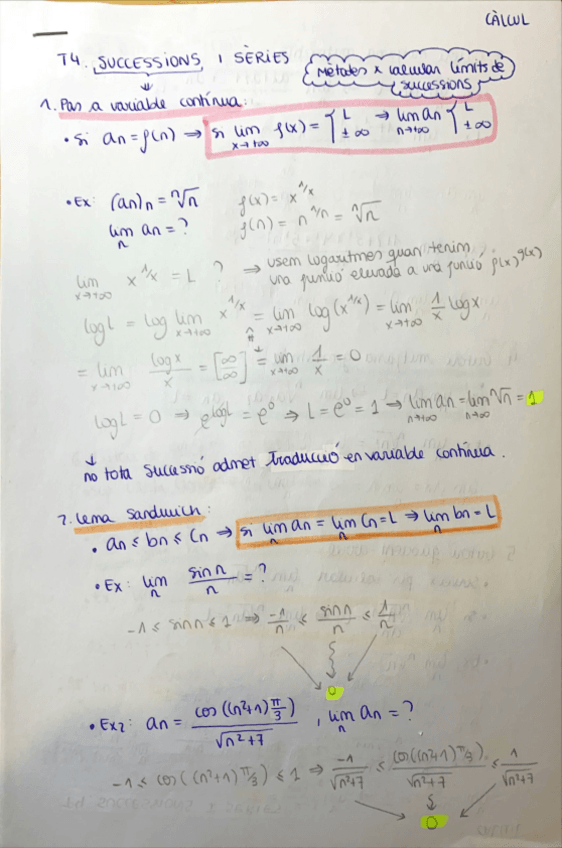 CÀLCUL
T4. SUCCESSIONS I SÈRIES
Mètodes x calcular límits de successions
1. Pas a variable contínua:
• Si an = f(n) ⇒ si lim x→+∞ f(x) = { L ±∞ ⇒ lim n→+∞ an { L ±∞
• Ex: (an)n = ⁿ√n f(x) = x^1/x
lim n an = ? f(n) = n^1/n = ⁿ√n
lim x→+∞ x^1/x = L ? ⇒ usem logaritmes quan tenim
una funció elevada a una funció f(x)^g(x)
log L = log lim x→+∞ x^1/x = lim x→+∞ log(x^1/x) = lim x→+∞ 1/x log x
= lim x→+∞ log x / x = [∞/∞] = lim x→+∞ 1/x = 0
log L = 0 ⇒ e^logL = e^0 ⇒ L = e^0 = 1 → lim n→+∞ an = lim n→+∞ ⁿ√n = 1
↓
no tota successió admet traducció en variable contínua.
2. Lema Sandwich:
• an ≤ bn ≤ cn ⇒ si lim n an = lim n cn = L ⇒ lim n bn = L
• Ex: lim n sin n / n = ?
-1 ≤ sin n ≤ 1 ⇒ -1/n ≤ sin n / n ≤ 1/n
0
• Ex2: an = cos((n²+1)π/3) / √n²+7 , lim n an = ?
-1 ≤ cos((n²+1)π/3) ≤ 1 ⇒ -1/√n²+7 ≤ cos((n²+1)π/3) / √n²+7 ≤ 1/√n²+7
0